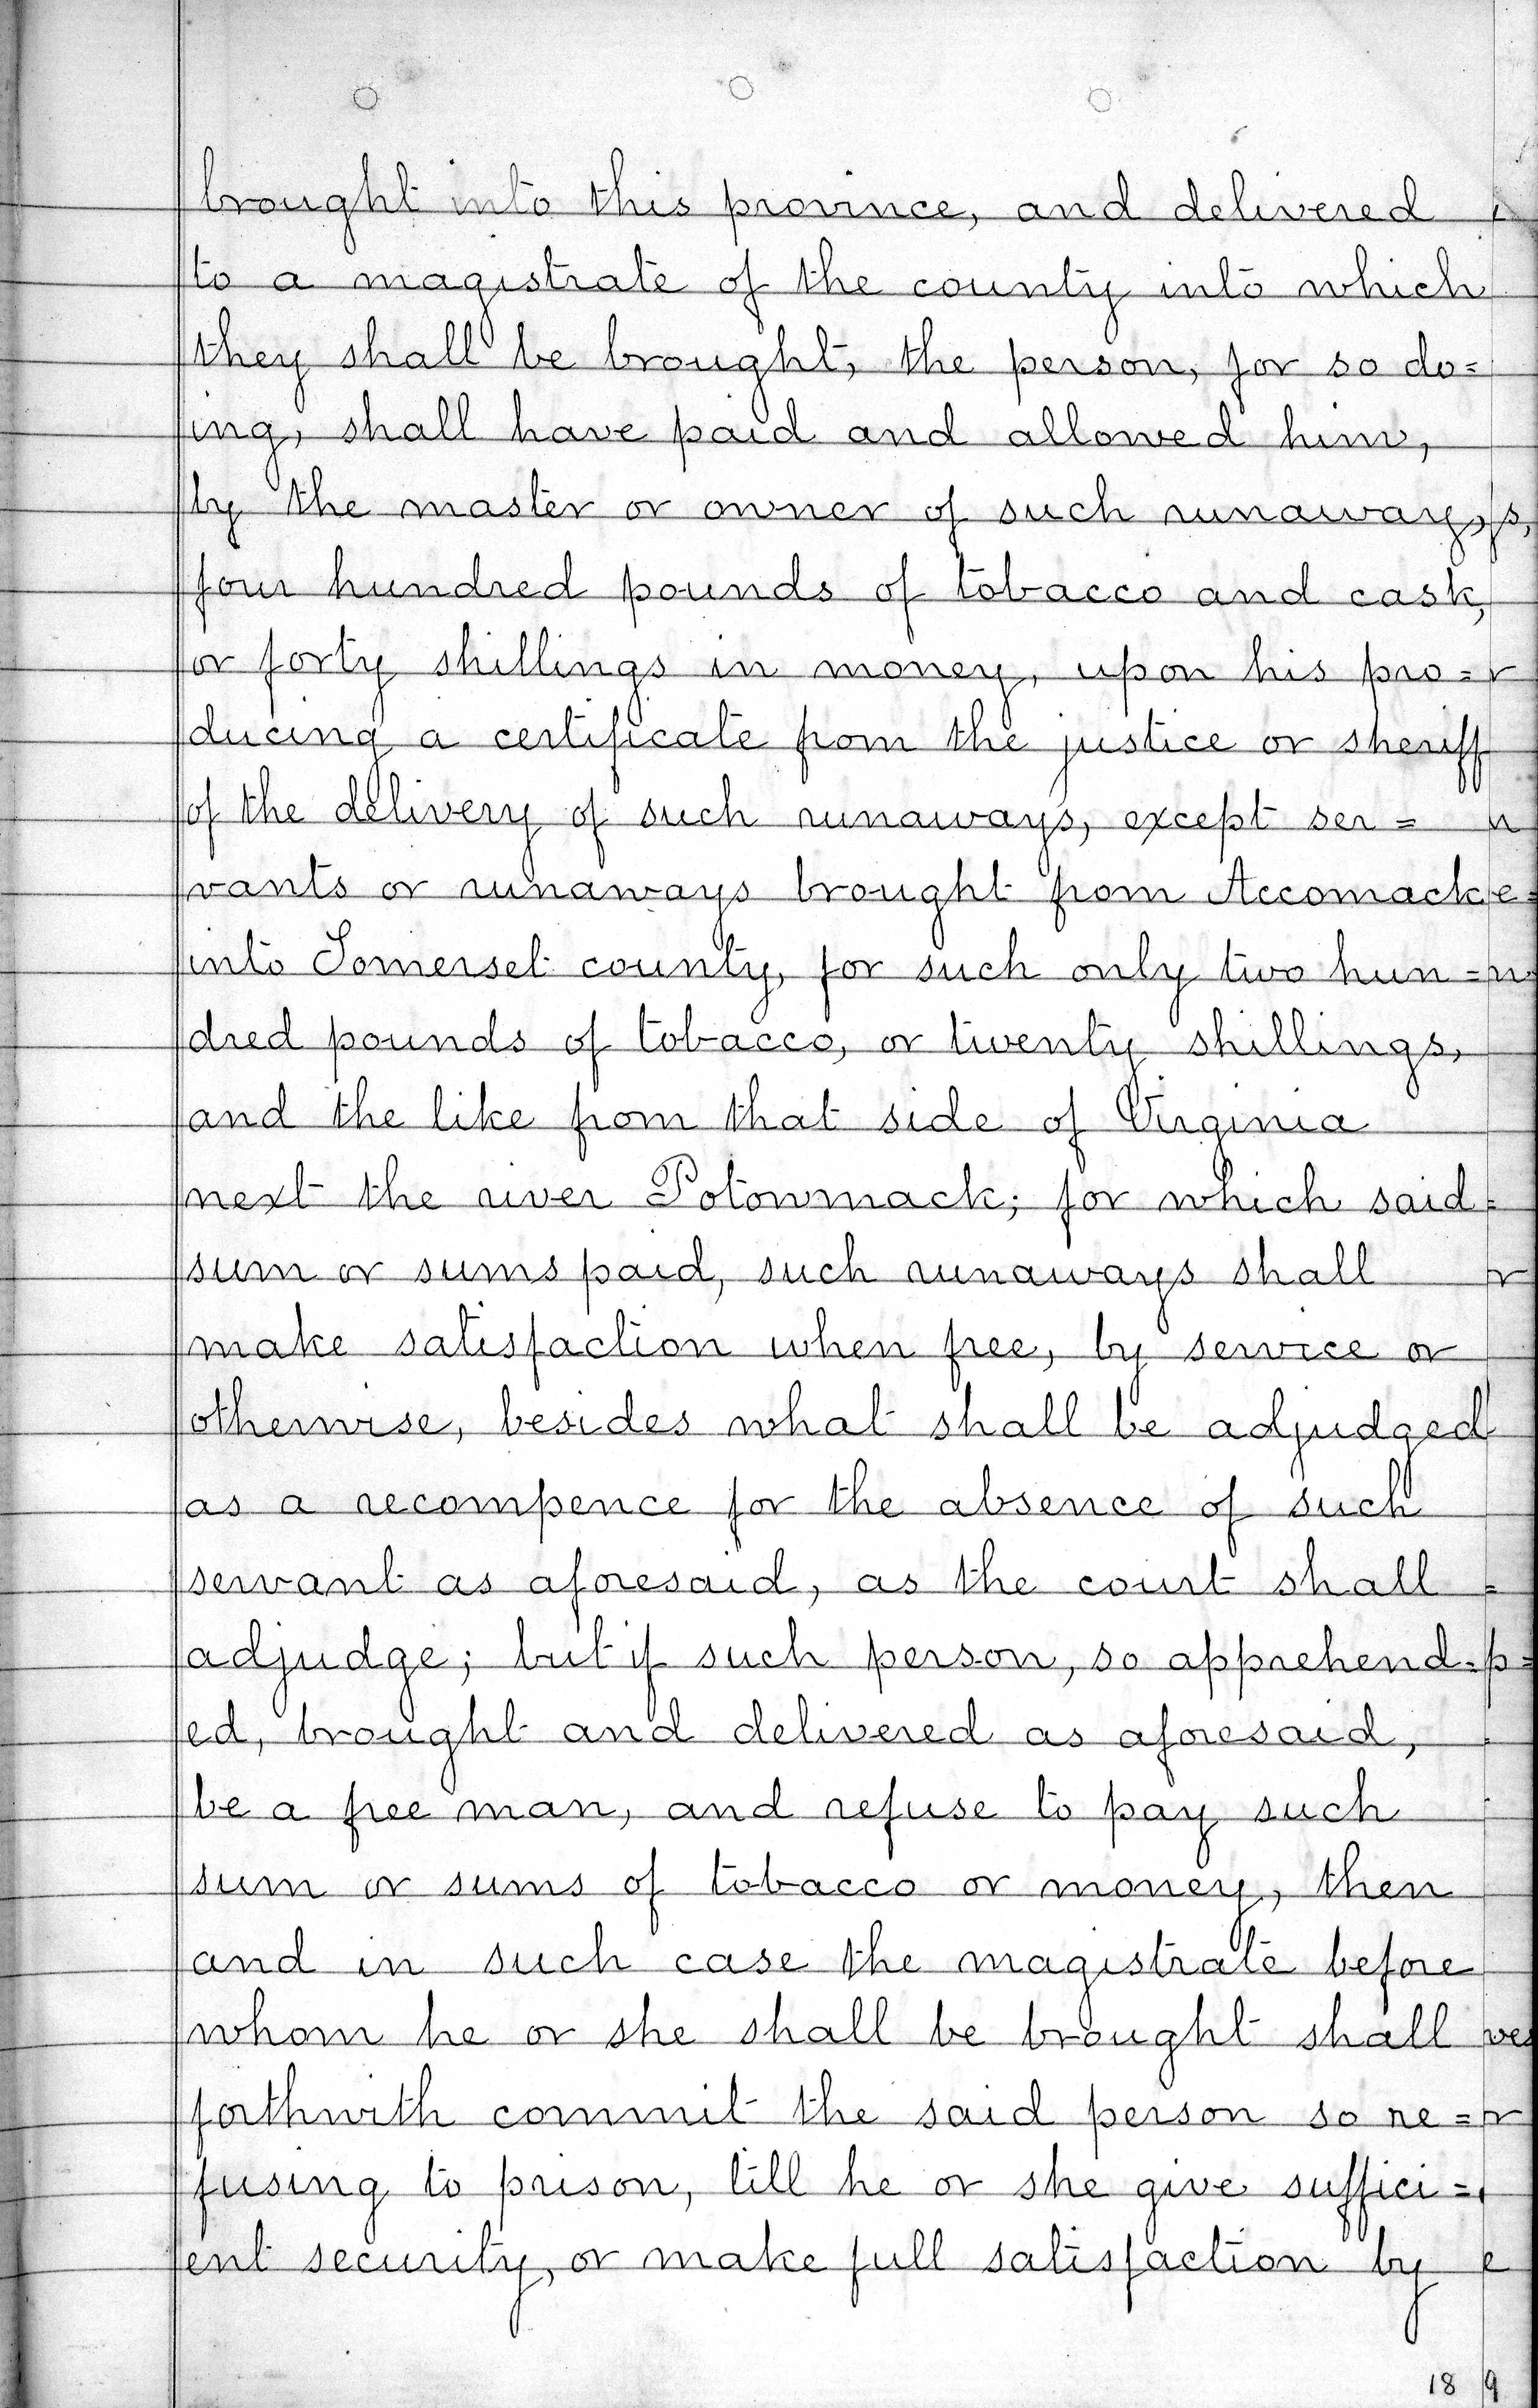 brought into this province, and delivered
to a magistrate of the county into which
they shall be brought, the person, for so do=
ing, shall have paid and allowed him,
by the master or owner of such runaway,
four hundred pounds of tobacco and cask,
or forty shillings in money, upon his pro=
ducing a certificate from the justice or sheriff
of the delivery of such runaways, except ser=
vants or runaways brought from Accomack
into Somerset county, for such only two hun=
dred pounds of tobacco, or twenty shillings,
and the like from that side of Virginia
next the river Potowmack; for which said
sum or sums paid, such runaways shall
make satisfaction when free, by service or
otherwise, besides what shall be adjudged
as a recompence for the absence of such
servant as aforesaid, as the court shall
adjudge; but if such person, so apprehend=
ed, brought and delivered as aforesaid,
be a free man, and refuse to pay such
sum or sums of tobacco or money, then
and in such case the magistrate before
whom he or she shall be brought shall
forthwith commit the said person so re=
fusing to prison, till he or she give suffici=
ent security, or make full satisfaction by
18
9